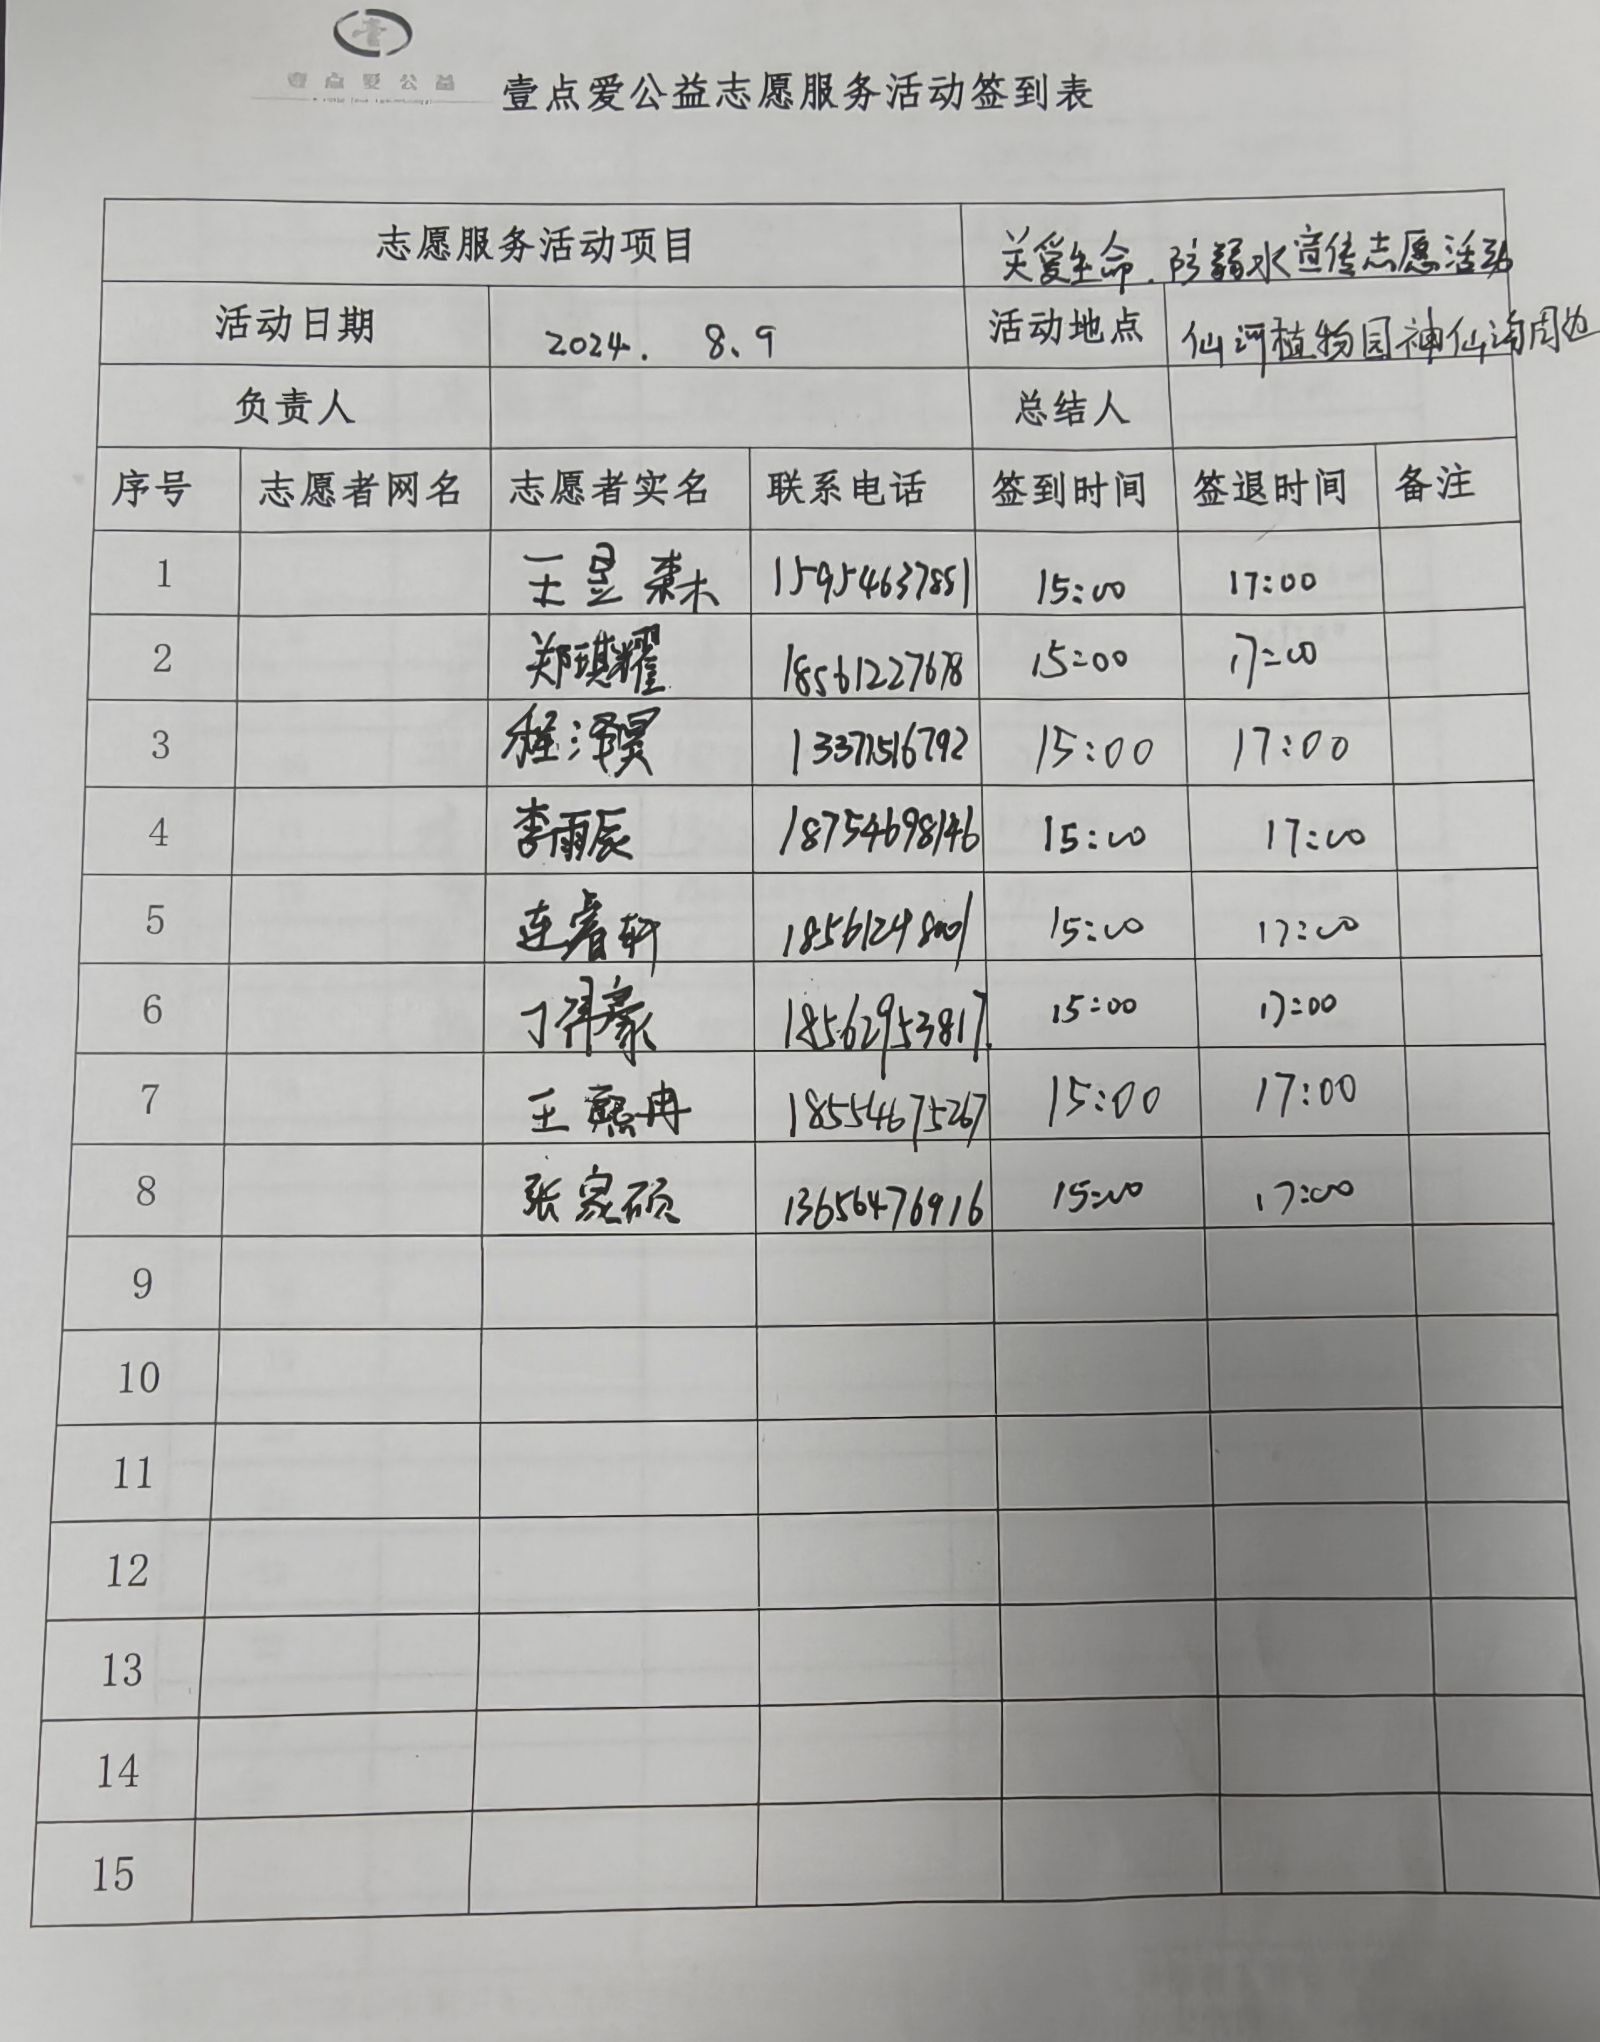 壹点爱公益
壹点爱公益志愿服务活动签到表
志愿服务活动项目 关爱生命.防溺水宣传志愿活动
活动日期 2024. 8、9 活动地点 仙河植物园神仙沟周边
负责人 总结人
序号 志愿者网名 志愿者实名 联系电话 签到时间 签退时间 备注
1 王昱森 15954637851 15:00 17:00
2 郑琪耀 18561227678 15:00 17:00
3 程泽昊 13371516792 15:00 17:00
4 李雨辰 18754698146 15:00 17:00
5 连睿轩 18561248001 15:00 17:00
6 丁 豪 18562953817. 15:00 17:00
7 王熙冉 18554675267 15:00 17:00
8 张家硕 13656476916 15:00 17:00
9
10
11
12
13
14
15